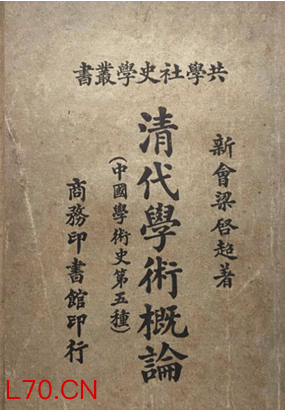 書叢學史社學共
新會梁啓超著
清代學術概論
(中國學術史第五種)
商務印書館印行
L70.CN